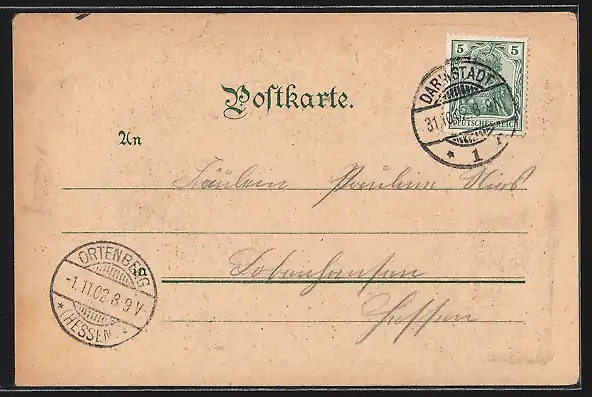 5 5
DEUTSCHES REICH
DARMSTADT
31.10.02. 8-9N
* 1
Postkarte.
An
Fräulein Pauline
in
Hessen
ORTENBERG
-1.11.02 8-9V
* (HESSEN)